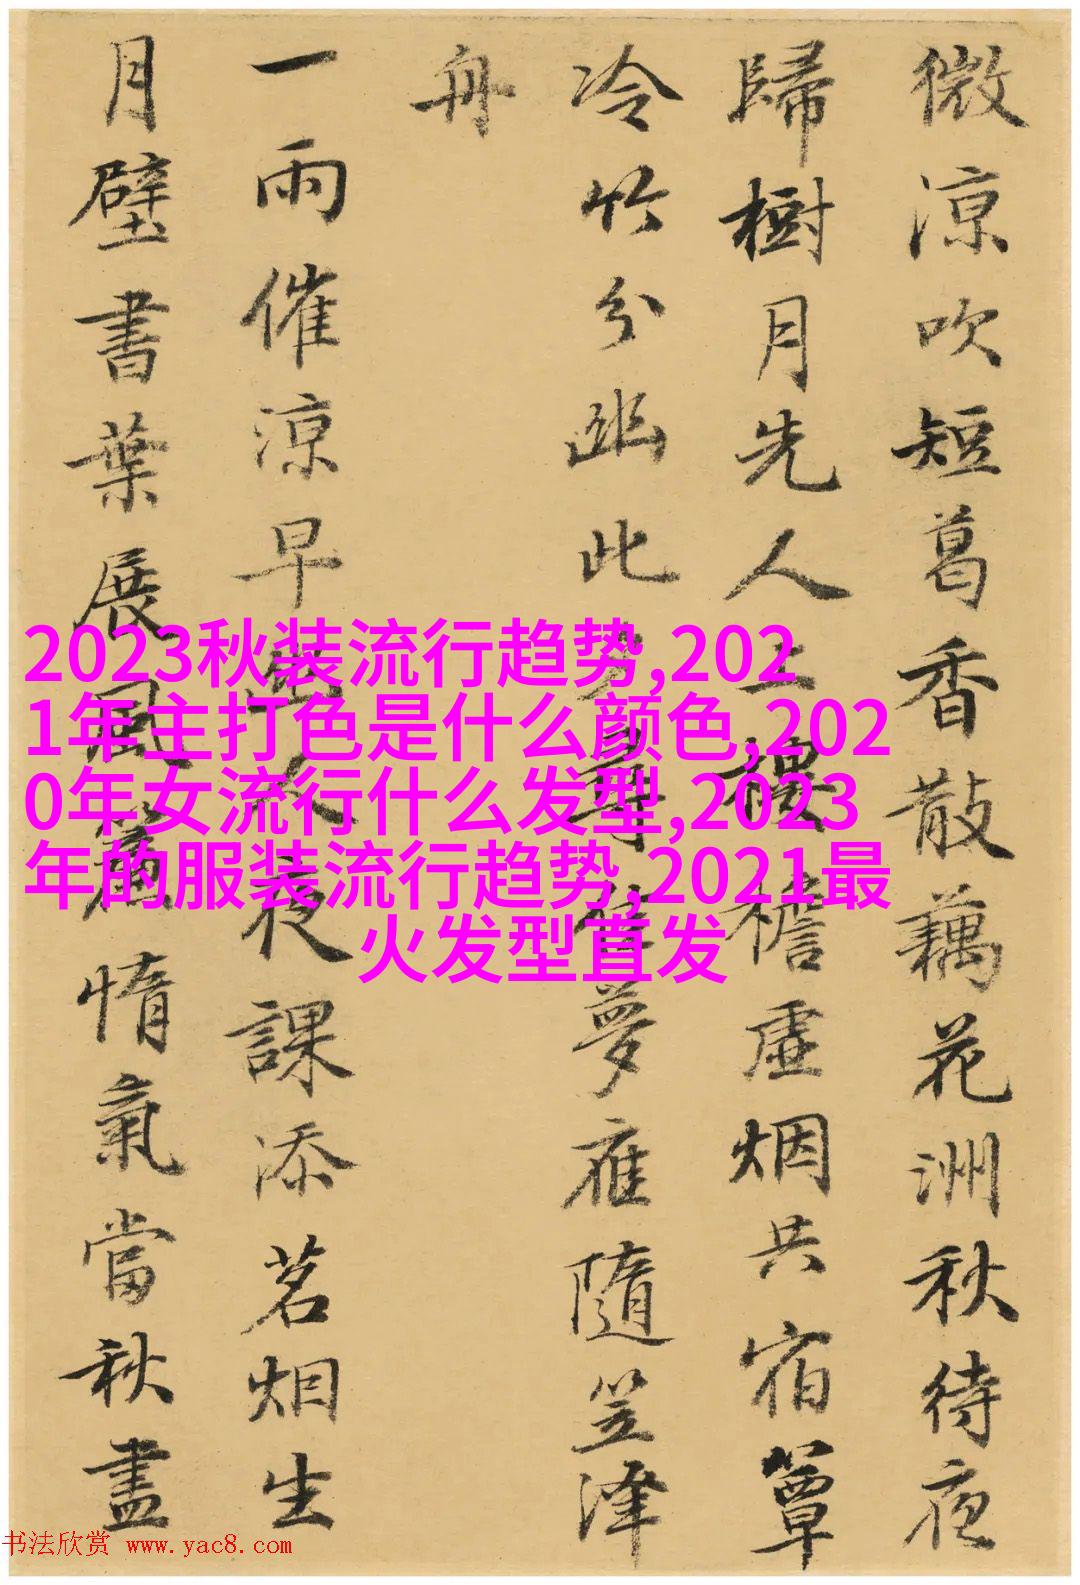 微涼吹短葛香散藕花洲秋待夜
歸樹月先人上樓檐虛烟共宿簟
冷竹分幽此尋夢雁隨笠澤
舟
一雨催涼早人夜課添茗烟生
月壁書葉展風惰氣當秋盡
2023秋装流行趋势,202
1年主打色是什么颜色,202
0年女流行什么发型,2023
年的服装流行趋势,2021最
火发型直发
书法欣赏 www.yac8.com